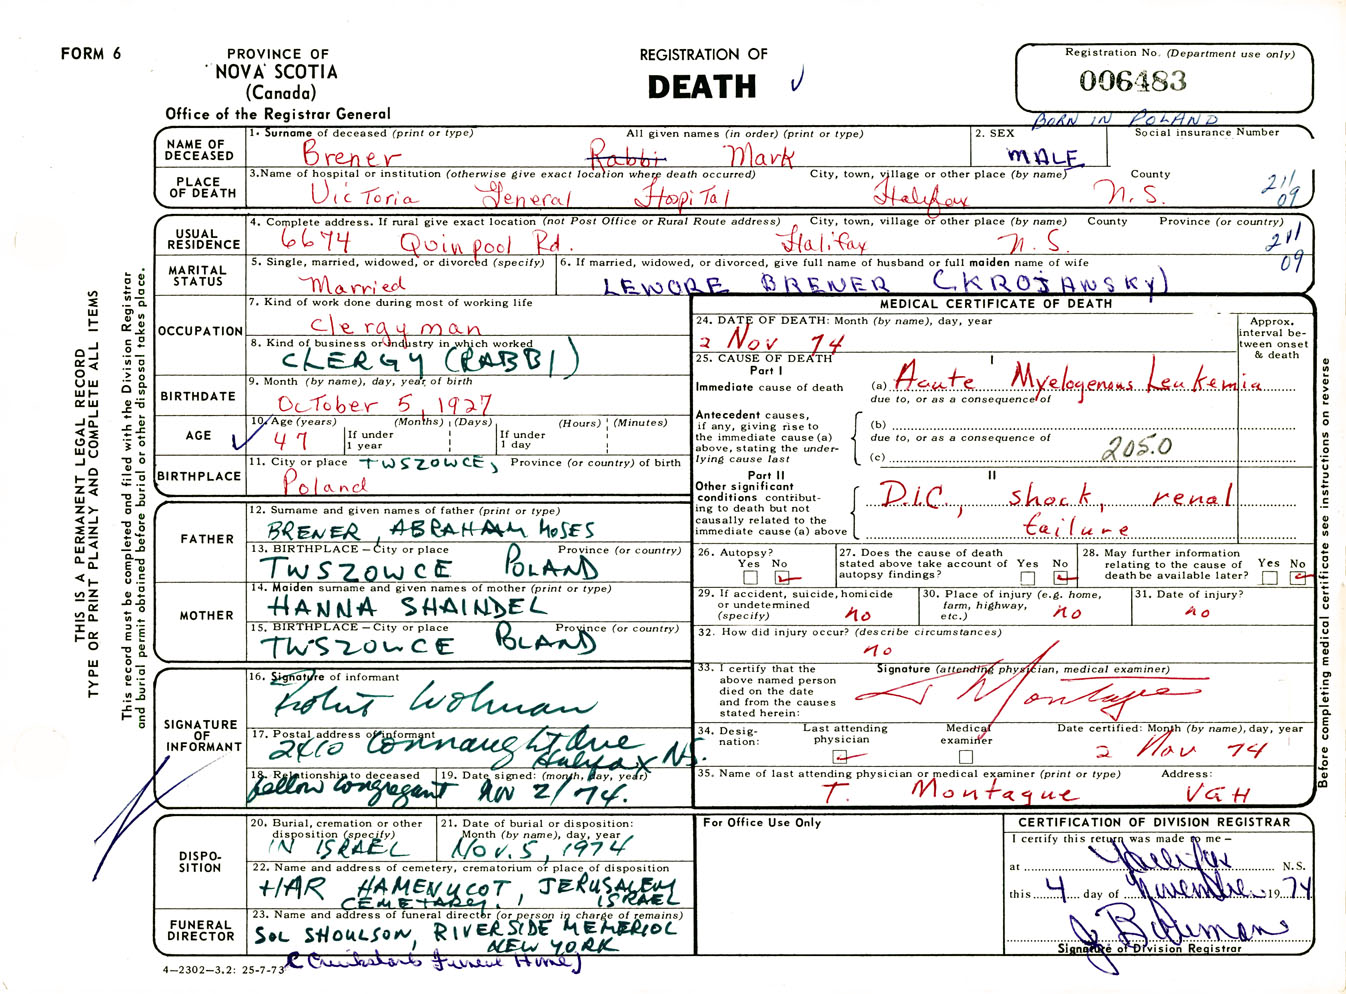 FORM 6
PROVINCE OF
NOVA SCOTIA
(Canada)
Office of the Registrar General
REGISTRATION OF
DEATH
Registration No. (Department use only)
006483
BORN IN POLAND
THIS IS A PERMANENT LEGAL RECORD
TYPE OR PRINT PLAINLY AND COMPLETE ALL ITEMS
This record must be completed and filed with the Division Registrar
and burial permit obtained before burial or other disposal takes place.
NAME OF DECEASED
1. Surname of deceased (print or type) All given names (in order) (print or type)
Brener Rabbi Mark
2. SEX
MALE
Social insurance Number
PLACE OF DEATH
3. Name of hospital or institution (otherwise give exact location where death occurred) City, town, village or other place (by name) County
Victoria General Hospital Halifax N.S.
211
09
USUAL RESIDENCE
4. Complete address. If rural give exact location (not Post Office or Rural Route address) City, town, village or other place (by name) County Province (or country)
6674 Quinpool Rd. Halifax N.S.
211
09
MARITAL STATUS
5. Single, married, widowed, or divorced (specify)
Married
6. If married, widowed, or divorced, give full name of husband or full maiden name of wife
LENORE BRENER (KROJANSKY)
OCCUPATION
7. Kind of work done during most of working life
Clergyman
8. Kind of business or industry in which worked
CLERGY (RABBI)
BIRTHDATE
9. Month (by name), day, year of birth
October 5, 1927
AGE
10. Age (years) (Months) (Days) (Hours) (Minutes)
47 If under 1 year If under 1 day
BIRTHPLACE
11. City or place TWSZOWCE, Province (or country) of birth
Poland
FATHER
12. Surname and given names of father (print or type)
BRENER, ABRAHAM MOSES
13. BIRTHPLACE – City or place Province (or country)
TWSZOWCE POLAND
MOTHER
14. Maiden surname and given names of mother (print or type)
HANNA SHAINDEL
15. BIRTHPLACE – City or place Province (or country)
TWSZOWCE POLAND
SIGNATURE OF INFORMANT
16. Signature of informant
Robert Wolman
17. Postal address of informant
2410 Connaught Ave
Halifax N.S.
18. Relationship to deceased
fellow congregant
19. Date signed: (month, day, year)
Nov 2/74.
DISPO-SITION
20. Burial, cremation or other disposition (specify)
IN ISRAEL
21. Date of burial or disposition: Month (by name), day, year
Nov. 5, 1974
22. Name and address of cemetery, crematorium or place of disposition
HAR HAMENUCOT, JERUSALEM
CEMETARY, ISRAEL
FUNERAL DIRECTOR
23. Name and address of funeral director (or person in charge of remains)
SOL SHOULSON, RIVERSIDE MEMERIOL
NEW YORK
(Cruikshanks Funeral Home)
4–2302–3.2: 25-7-73
MEDICAL CERTIFICATE OF DEATH
24. DATE OF DEATH: Month (by name), day, year
2 Nov 74
Approx. interval be-tween onset & death
25. CAUSE OF DEATH
Part I
I
Immediate cause of death
(a) Acute Myelogenous Leukemia
due to, or as a consequence of
Antecedent causes, if any, giving rise to the immediate cause (a) above, stating the under-lying cause last
(b)
due to, or as a consequence of
(c)
205.0
Part II
II
Other significant conditions contribut-ing to death but not causally related to the immediate cause (a) above
D.I.C., shock, renal
failure
26. Autopsy?
Yes No
27. Does the cause of death stated above take account of autopsy findings?
Yes No
28. May further information relating to the cause of death be available later?
Yes No
29. If accident, suicide, homicide or undetermined (specify)
no
30. Place of injury (e.g. home, farm, highway, etc.)
no
31. Date of injury?
no
32. How did injury occur? (describe circumstances)
no
33. I certify that the above named person died on the date and from the causes stated herein:
Signature (attending physician, medical examiner)
T Montague
34. Desig-nation:
Last attending physician
Medical examiner
Date certified: Month (by name), day, year
2 Nov 74
35. Name of last attending physician or medical examiner (print or type) Address:
T. Montague VGH
Before completing medical certificate see instructions on reverse
For Office Use Only
CERTIFICATION OF DIVISION REGISTRAR
I certify this return was made to me –
at Halifax N.S.
this 4 day of November 1974
Signature of Division Registrar